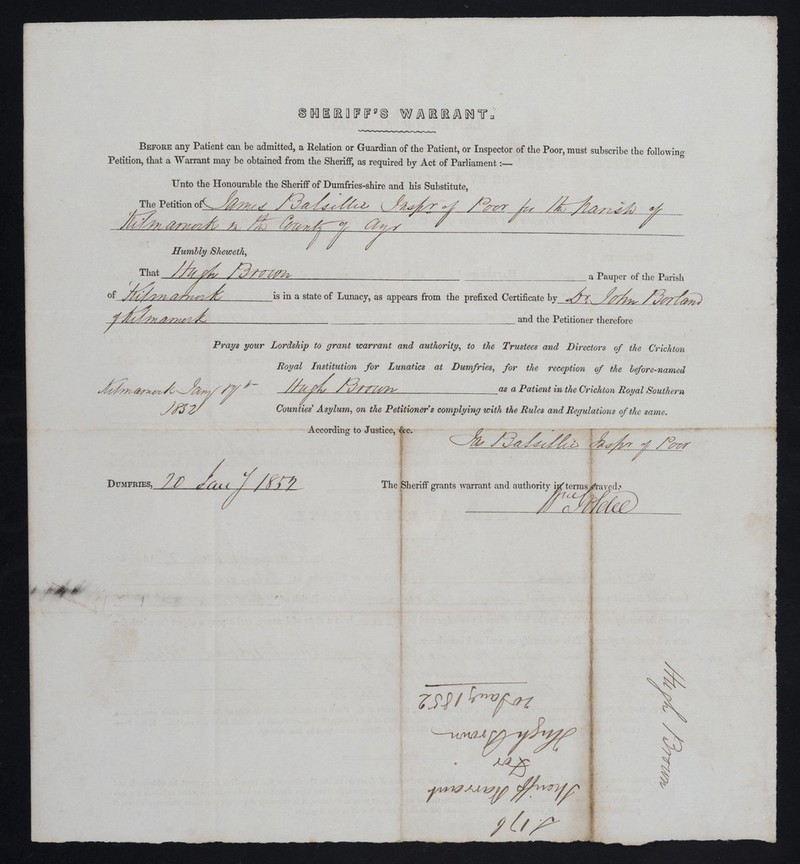 SHERIFF'S WARRANT.
BEFORE any Patient can be admitted, a Relation or Guardian of the Patient, or Inspector of the Poor, must subscribe the following
Petition, that a Warrant may be obtained from the Sheriff, as required by Act of Parliament:—
Unto the Honourable the Sheriff of Dumfries-shire and his Substitute,
The Petition of James Balsillie Inspr of Poor for the Parish of
Kilmarnock in the County of Ayr
Humbly Sheweth,
That Hugh Brown a Pauper of the Parish
of Kilmarnock is in a state of Lunacy, as appears from the prefixed Certificate by Dr. John Borland
of Kilmarnock and the Petitioner therefore
Prays your Lordship to grant warrant and authority, to the Trustees and Directors of the Crichton
Royal Institution for Lunatics at Dumfries, for the reception of the before-named
Kilmarnock Jany 19th Hugh Brown as a Patient in the Crichton Royal Southern
1852 Counties' Asylum, on the Petitioner's complying with the Rules and Regulations of the same.
According to Justice, &c.
Ja Balsillie Inspr of Poor
DUMFRIES, 20 Jany 1852 The Sheriff grants warrant and authority in terms prayed.
Hugh Brown
Sheriff Warrant
For
Hugh Brown
20 Jany 1852